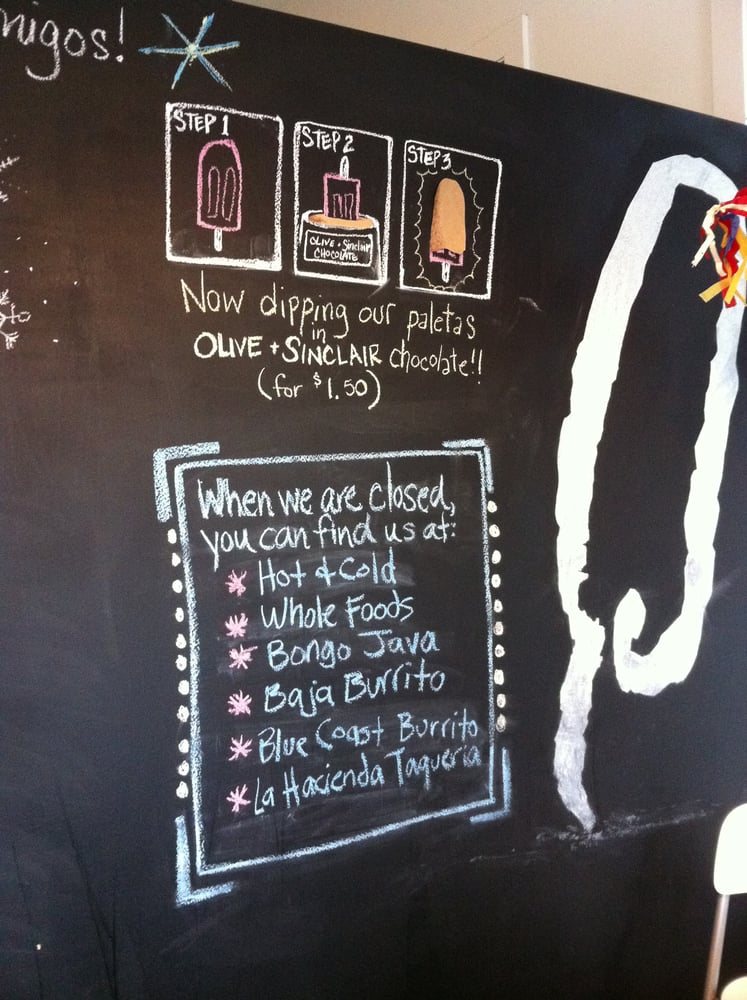 migos!
STEP 1
STEP 2
STEP 3
OLIVE + Sinclair
CHOCOLATE
Now dipping our paletas
in
OLIVE + SINCLAIR chocolate!!
(for $1.50)
When we are closed,
you can find us at:
* Hot & Cold
* Whole Foods
* Bongo Java
* Baja Burrito
* Blue Coast Burrito
* La Hacienda Taqueria